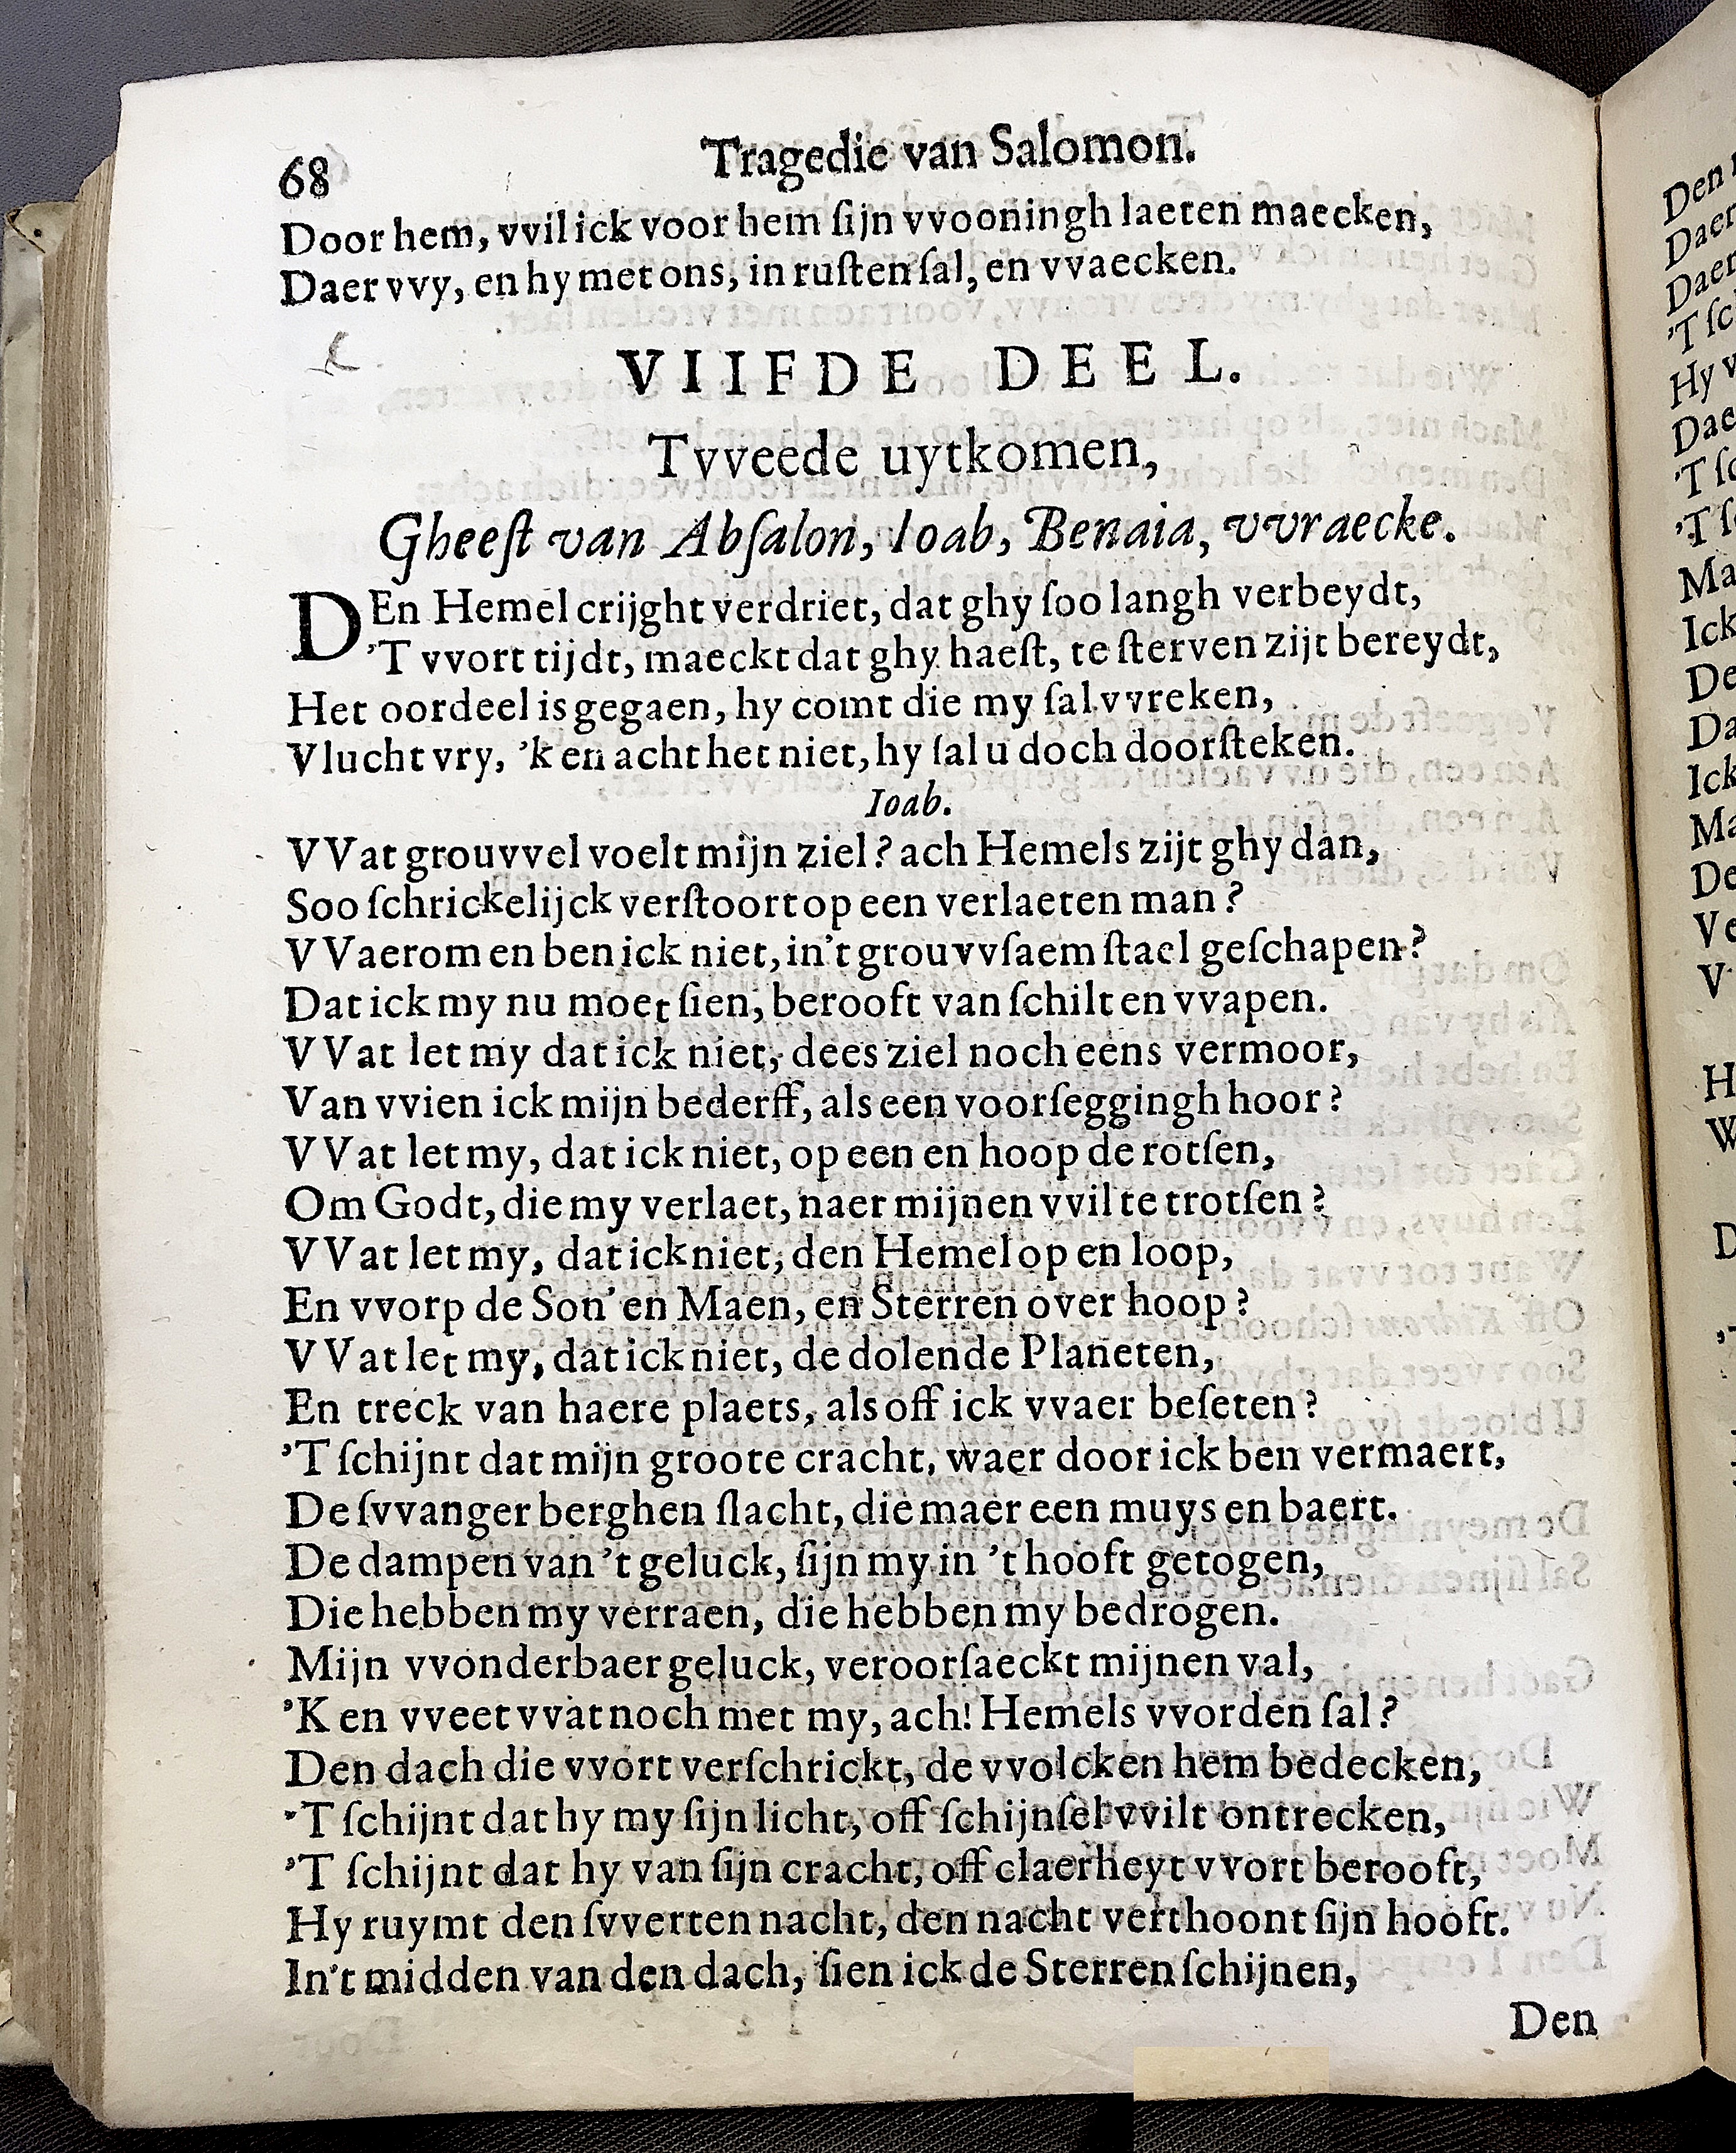 68 Tragedie van Salomon.
Door hem, vvil ick voor hem ſijn vvooningh laeten maecken,
Daer vvy, en hy met ons, in ruſten ſal, en vvaecken.
VIIFDE DEEL.
Tvveede uytkomen,
Gheeſt van Abſalon, Ioab, Benaia, vvraecke.
DEn Hemel crijght verdriet, dat ghy ſoo langh verbeydt,
'T vvort tijdt, maeckt dat ghy haeſt, te ſterven zijt bereydt,
Het oordeel is gegaen, hy comt die my ſal vvreken,
Vlucht vry, 'k en acht het niet, hy ſal u doch doorſteken.
Ioab.
VVat grouvvel voelt mijn ziel? ach Hemels zijt ghy dan,
Soo ſchrickelijck verſtoort op een verlaeten man?
VVaerom en ben ick niet, in't grouvvſaem ſtael geſchapen?
Dat ick my nu moet ſien, berooft van ſchilt en vvapen.
VVat let my dat ick niet, dees ziel noch eens vermoor,
Van vvien ick mijn bederff, als een voorſeggingh hoor?
VVat let my, dat ick niet, op een en hoop de rotſen,
Om Godt, die my verlaet, naer mijnen vvil te trotſen?
VVat let my, dat ick niet, den Hemel op en loop,
En vvorp de Son' en Maen, en Sterren over hoop?
VVat let my, dat ick niet, de dolende Planeten,
En treck van haere plaets, als off ick vvaer beſeten?
'T ſchijnt dat mijn groote cracht, waer door ick ben vermaert,
De ſvvanger berghen ſlacht, die maer een muys en baert.
De dampen van 't geluck, ſijn my in 't hooft getogen,
Die hebben my verraen, die hebben my bedrogen.
Mijn vvonderbaer geluck, veroorſaeckt mijnen val,
'K en vveet vvat noch met my, ach! Hemels vvorden ſal?
Den dach die vvort verſchrickt, de vvolcken hem bedecken,
'T ſchijnt dat hy my ſijn licht, off ſchijnſel vvilt ontrecken,
'T ſchijnt dat hy van ſijn cracht, off claerheyt vvort berooft,
Hy ruymt den ſvverten nacht, den nacht verthoont ſijn hooft.
In't midden van den dach, ſien ick de Sterren ſchijnen,
Den